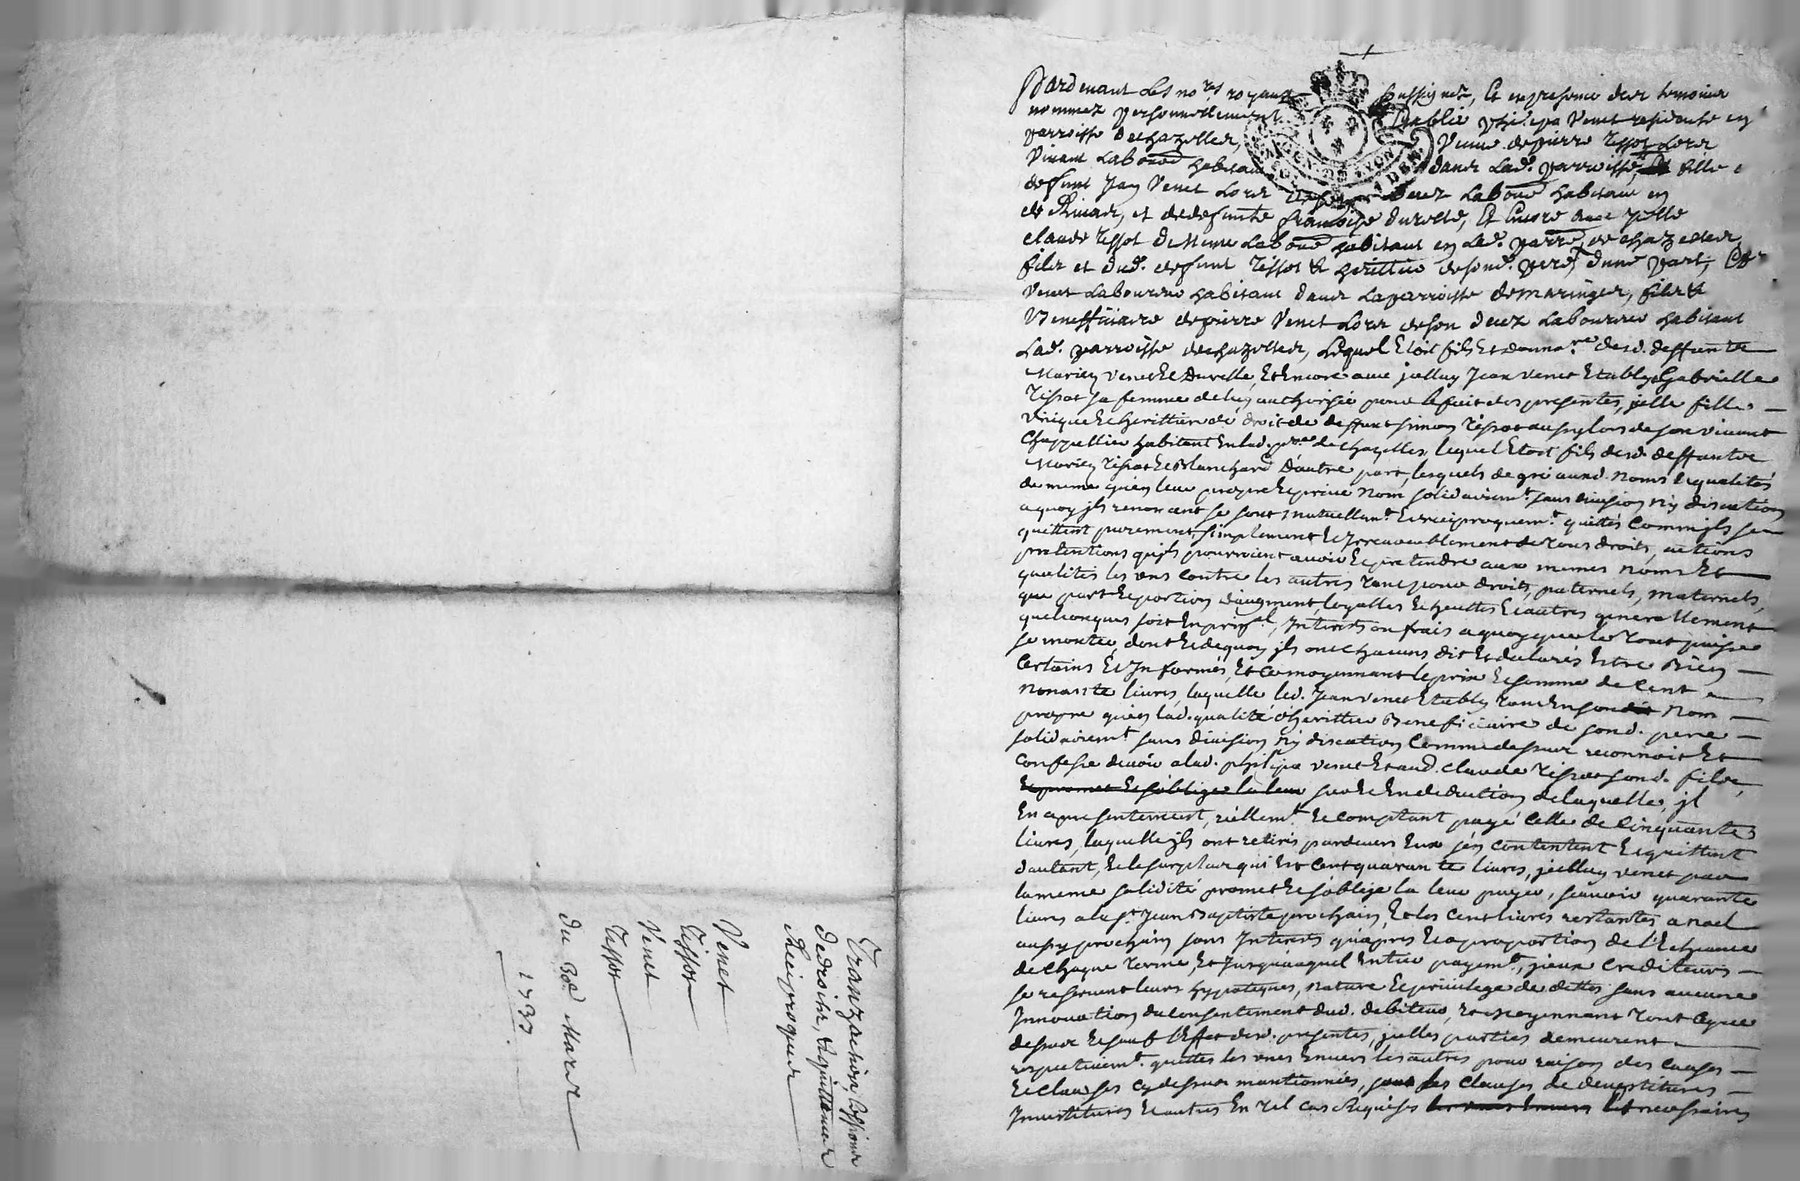 Tranzaction, Cessions
de droits, & quittances
Reciproques
Venet
Tissot
Venet
Tissot
du 30e Mars
1733.
Pardevant les no.res royaux soussignez, Et en presence des temoins
nommez personnellement Establie phi pa Venet residante en
parroisse de chazelles, Veuve de pierre Tissot Lors
Vivant Labour habitant dans Lad. parroisse, fille
defunt Jean Venet Lors decez Labour habitant en
et de defunte francoise durelle, Et encore avec
claude Tissot Labour habitant en Lad. parr. de chazelles,
fils et dud. defunt Tissot & herittier de sond. pere, d'une part, Et
Venet Laboureur habitant dans La parroisse de maringes, fils &
Beneffiiaire de pierre Venet Lors de son decez Laboureur habitant
Lad. parroisse de chazelles, Lequel Etoit fils Et donna.re desd. deffunts
Mariez Venet Et Durelle, Et Encore avec jcelluy Jean Venet Etably Gabrielle
Tissot sa femme de luy authorisée pour le fait des presentes, jcelle fille
Unique Et herittiere de droit de deffunt simon Tissot lors de son vivant
Chappellier habitant En lad. p.sse de chazelles, lequel Etoit fils desd. deffunts
Mariez Tissot Et Blanchard d'autre part, lesquels de gré auxd. Noms Et qualités
de meme qu'en leur propre Et privé Nom solidairem.t sans division ny discution
a quoy jls renoncent se sont mutuellem.t Et reciproquem.t quittés Comm jls se
quittent purement, simplement Et Irrevocablement de tous droits, actions
pretentions qu'jls pourroient avoir Et pretendre aux memes Noms Et
qualités les uns Contre les autres tant pour droits, paternels, maternels,
que part Et portion d'augment, Et autres generallement
quelconques soit En prin.al, Interets ou frais a quoy que le tout puisse
se monter, dont Et de quoy jls ont chacuns dit Et declarés Estre Bien
Certains Et Informés, Et Ce moyennant le prix Et somme de Cent
Nonante livres, laquelle led. Jean Venet Etably tant En son Nom
propre qu'en lad. qualité d'herittier Beneficiaire de sond. pere
solidairem.t sans division ny discution Comme dessus reconnoit Et
Confesse devoir a lad. philipa Venet Et aud. Claude Tissot sond. fils,
Et promet Et s'oblige la leur sur Et En deduction de laquelle, jl
En a presentement, réellem.t Et Comptant payé Celle de Cinquante
livres, laquelle jls ont retirés pardevers Eux s'en Contentent Et quittent
d'autant, Et le surplus qui Est Cent quarante livres, jcelluy Venet par
la meme solidité promet Et s'oblige la leur payer, scavoir quarante
livres a la S.t Jean Baptiste prochain, Et les Cent livres restantes a noel
aussy prochain sans Interets qu'apres Et a proportion de l'Echeance
de Chaque terme, Et jusqu'auquel Entier payem.t, Crediteurs
se reservent leurs hypoteques, nature Et privilege de dettes sans aucune
Innovation du Consentement dud. debiteur, Et Moyennant tout Ce que
dessus Et sauf l'Effet desd. presentes, jcelles parties demeurent
respectivem.t quittes les unes Envers les autres pour raison des Causes
Et Clauses Cy dessus mantionnées, sous les Clauses de devestitures
Investitures Et autres En tel Cas Requises Et necessaires